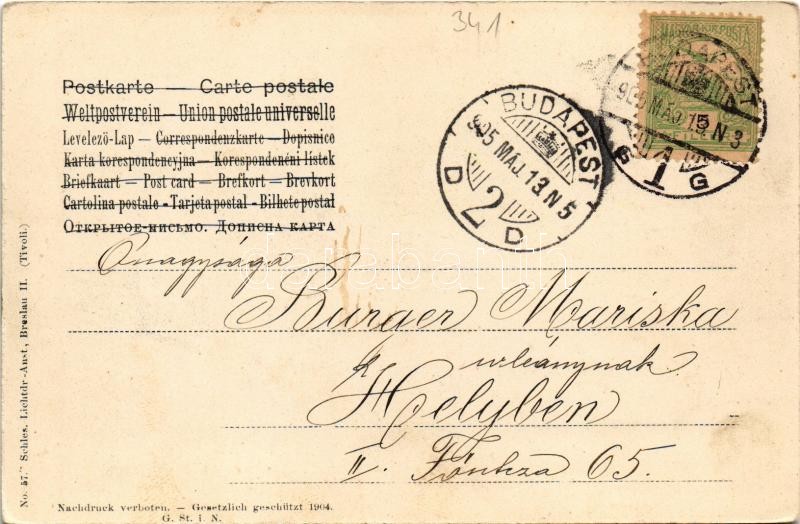 341
Postkarte — Carte postale
Weltpostverein — Union postale universelle
Levelező-Lap — Correspondenzkarte — Dopisnice
Karta korespondencyjna — Korespondenční lístek
Briefkaart — Post card — Brefkort — Brevkort
Cartolina postale - Tarjeta postal - Bilhete postal
Открытое-письмо. Дописна карта
MAGYAR KIR. POSTA
5
BUDAPEST
905 MÁJ. 13. N 3
1
G
BUDAPEST
905 MÁJ. 13. N 5
D 2 D
Őnagysága
Burger Mariska
urleánynak
Helyben
II. Fő utcza 65.
No. 57. Schles. Lichtdr.-Anst., Breslau II. (Tivoli.)
Nachdruck verboten. — Gesetzlich geschützt 1904.
G. St. i. N.
darabanth